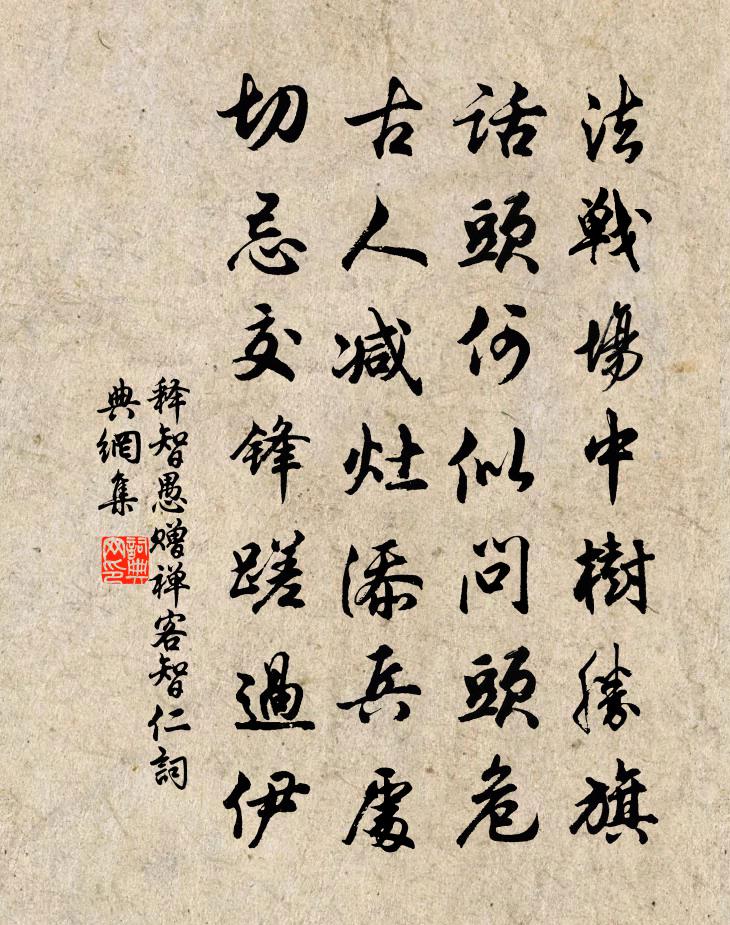 法戰場中樹勝旗
話頭何似問頭危
古人减灶添兵處
切忌交鋒蹉過伊
释智愚赠禅客智仁詞
典網集
詞典网印